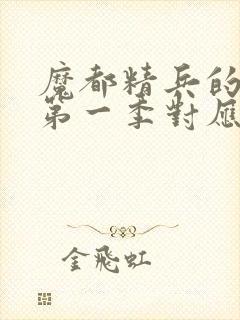 魔都精兵的
第一季對應
金飛虹